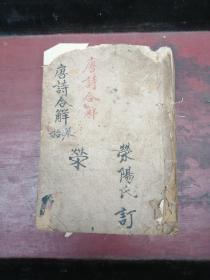 滎陽氏訂
唐詩合解
滎
唐詩合解